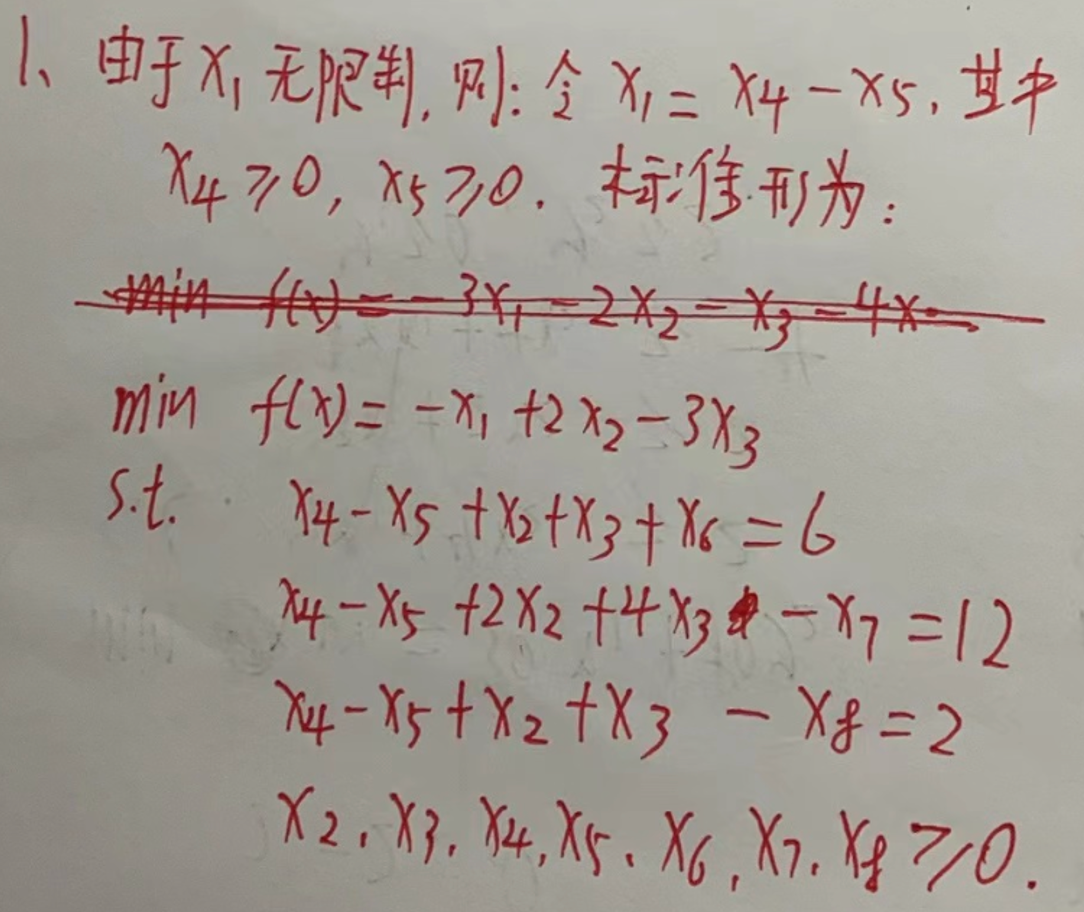 1、由于x₁无限制,则:令 x₁= x₄-x₅,其中
x₄≥0, x₅≥0. 标准形为:
min f(x)=-3x₁-2x₂-x₃-4x
min f(x)= -x₁+2x₂-3x₃
s.t. x₄-x₅+x₂+x₃+x₆=6
x₄-x₅+2x₂+4x₃-x₇=12
x₄-x₅+x₂+x₃-x₈=2
x₂、x₃、x₄、x₅、x₆、x₇、x₈≥0.